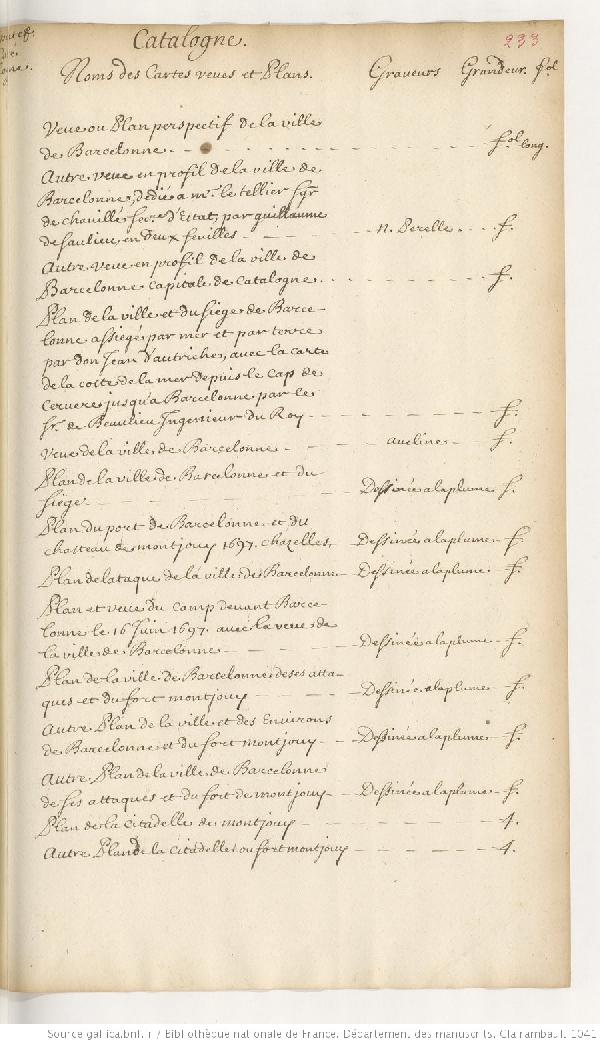 Catalogne.
233
Noms des Cartes veues et Plans. Graveurs Grandeur. fol
Veue ou Plan perspectif de la ville
de Barcelonne. fol long.
Autre veue en profil de la ville de
Barcelonne, dediée a mr. le tellier sgr
de chauille secre d'Etat, par guillaume
de saulieu en deux feuilles - n. Perelle. f.
Autre veue en profil de la ville de
Barcelonne capitale de Catalogne. f.
Plan de la ville et du siege de Barce-
lonne assiegé par mer et par terre
par don Jean d'autriche, avec la carte
de la coste de la mer depuis le cap de
Cervere jusqu'a Barcelonne par le
Sr. de Beaulieu Ingenieur du Roy - f.
veue de la ville de Barcelonne - aveline - f.
Plan de la ville de Barcelonne et du
siege - Dessinée a la plume f.
Plan du port de Barcelonne et du
chasteau de montjouy 1697. chazelles. - Dessinée a la plume - f.
Plan de lataque de la ville de Barcelonne - Dessinée a la plume - f.
Plan et veue du camp devant Barce-
lonne le 16 Juin 1697. avec la veue de
la ville de Barcelonne - Dessinée a la plume - f.
Plan de la ville de Barcelonne de ses atta-
ques et du fort montjouy - Dessinée a la plume - f.
Autre Plan de la ville et des Environs
de Barcelonne et du fort montjouy - Dessinée a la plume - f.
Autre Plan de la ville de Barcelonne
de ses attaques et du fort de montjouy - Dessinée a la plume - f.
Plan de la citadelle de montjouy - 4.
Autre Plan de la citadelle ou fort montjouy - 4.
Source gallica.bnf.fr / Bibliothèque nationale de France. Département des manuscrits. Clairambault 1041